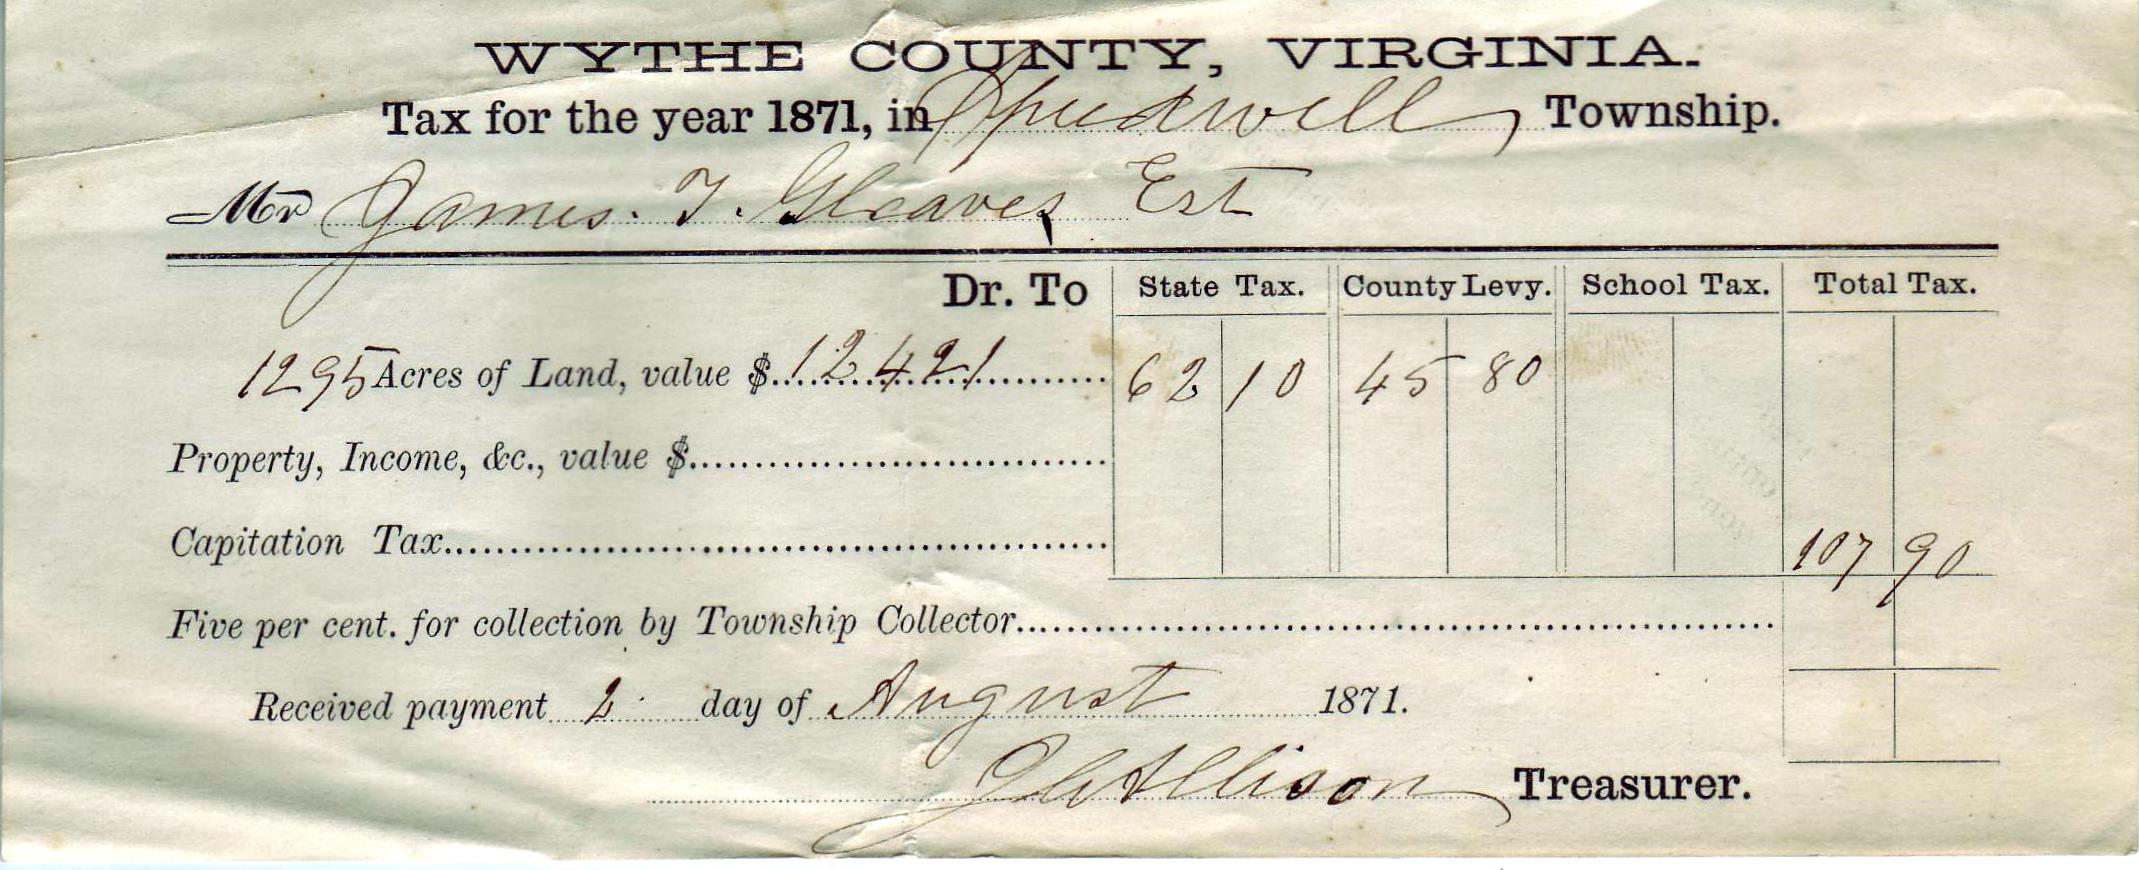 WYTHE COUNTY, VIRGINIA.
Tax for the year 1871, in Speedwell Township.
Mr James. T. Gleaves Est
Dr. To State Tax. County Levy. School Tax. Total Tax.
1295 Acres of Land, value $ 12421 62 10 45 80
Property, Income, &c., value $
Capitation Tax 107 90
Five per cent. for collection by Township Collector
Received payment 2 day of August 1871.
Allison Treasurer.